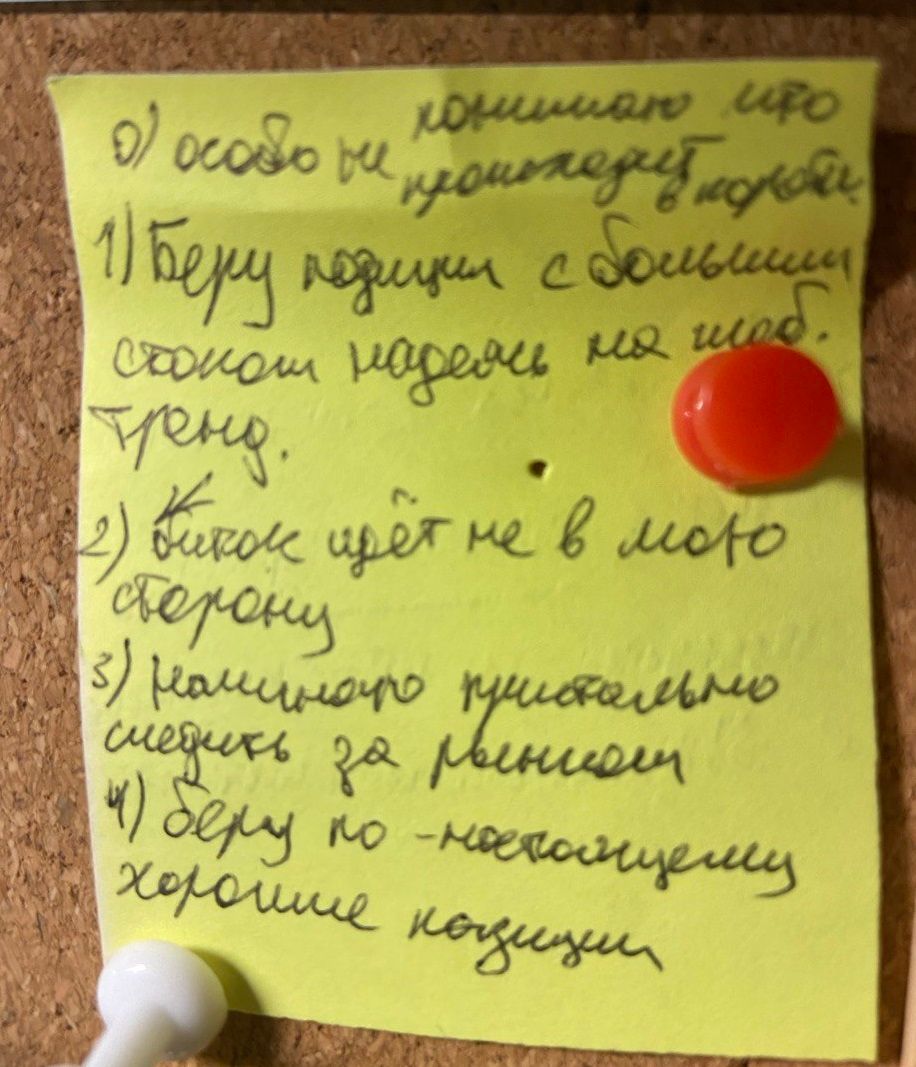 0) особо не понимаю что
происходит в
1) Беру позиции с большим
стопом надеясь на глоб.
тренд.
2) Биток идёт не в мою
сторону
3) начинаю пристально
следить за рынком
4) беру по-настоящему
хорошие позиции